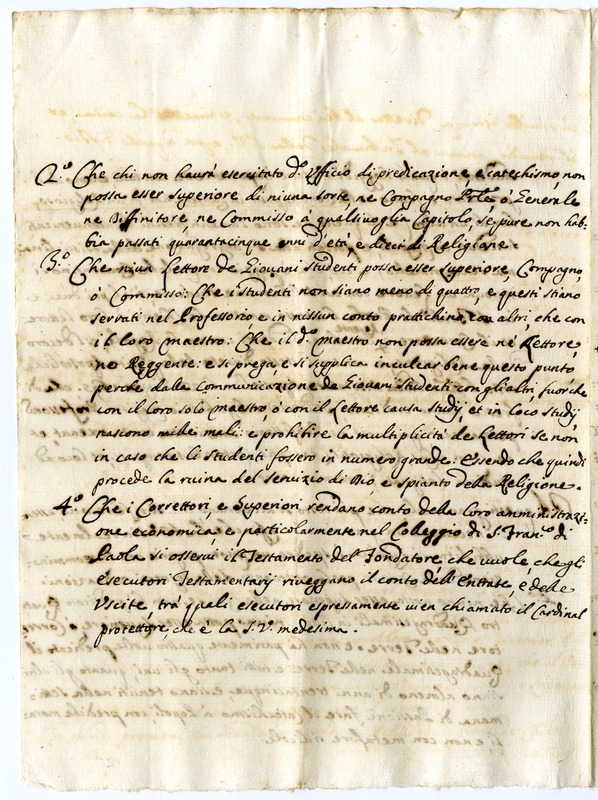 2.° Che chi non haurà esercitato d.° Vfficio di predicazione, e catechismo, non
possa esser superiore di niuna sorte, ne Compagno Prle, ò Generale
ne Diffinitore, ne Commisso à qualsiuoglia Capitolo, se pure non hab:
bia passati quarantacinque anni d'età, e dieci di Religione.
3.° Che niun Lettore de Giouani studenti possa esser superiore, Compagno,
ò Commisso: Che i studenti non siano meno di quattro, e questi stiano
serrati nel Professorio, e in nissun conto prattichino con altri, che con
il loro maestro: Che il d.° maestro non possa essere ne Rettore,
ne Reggente: e si prega, e si supplica inculcar bene questo punto
perche dalla communicazione de Giouani studenti con gli altri, fuorche
con il loro solo maestro, ò con il Lettore causa studij, et in loco studij,
nascono mille mali: e prohibire la multiplicità de Lettori se non
in caso che li studenti fossero in numero grande: essendo che quindi
procede la ruina del seruizio di Dio, e spianto della Religione.
4.° Che i Correttori, e Superiori rendano conto della loro amministrazi-
one economica, e particolarmente nel Colleggio di S. Fran.co di
Paola si osserui il Testamento del Fondatore, che vuole, che gli
Esecutori Testamentarij riueggano il conto dell'Entrate, e delle
Vscite, trà quali esecutori espressamente uien chiamato il Cardinal
protettore, che è la S. V. medesima.